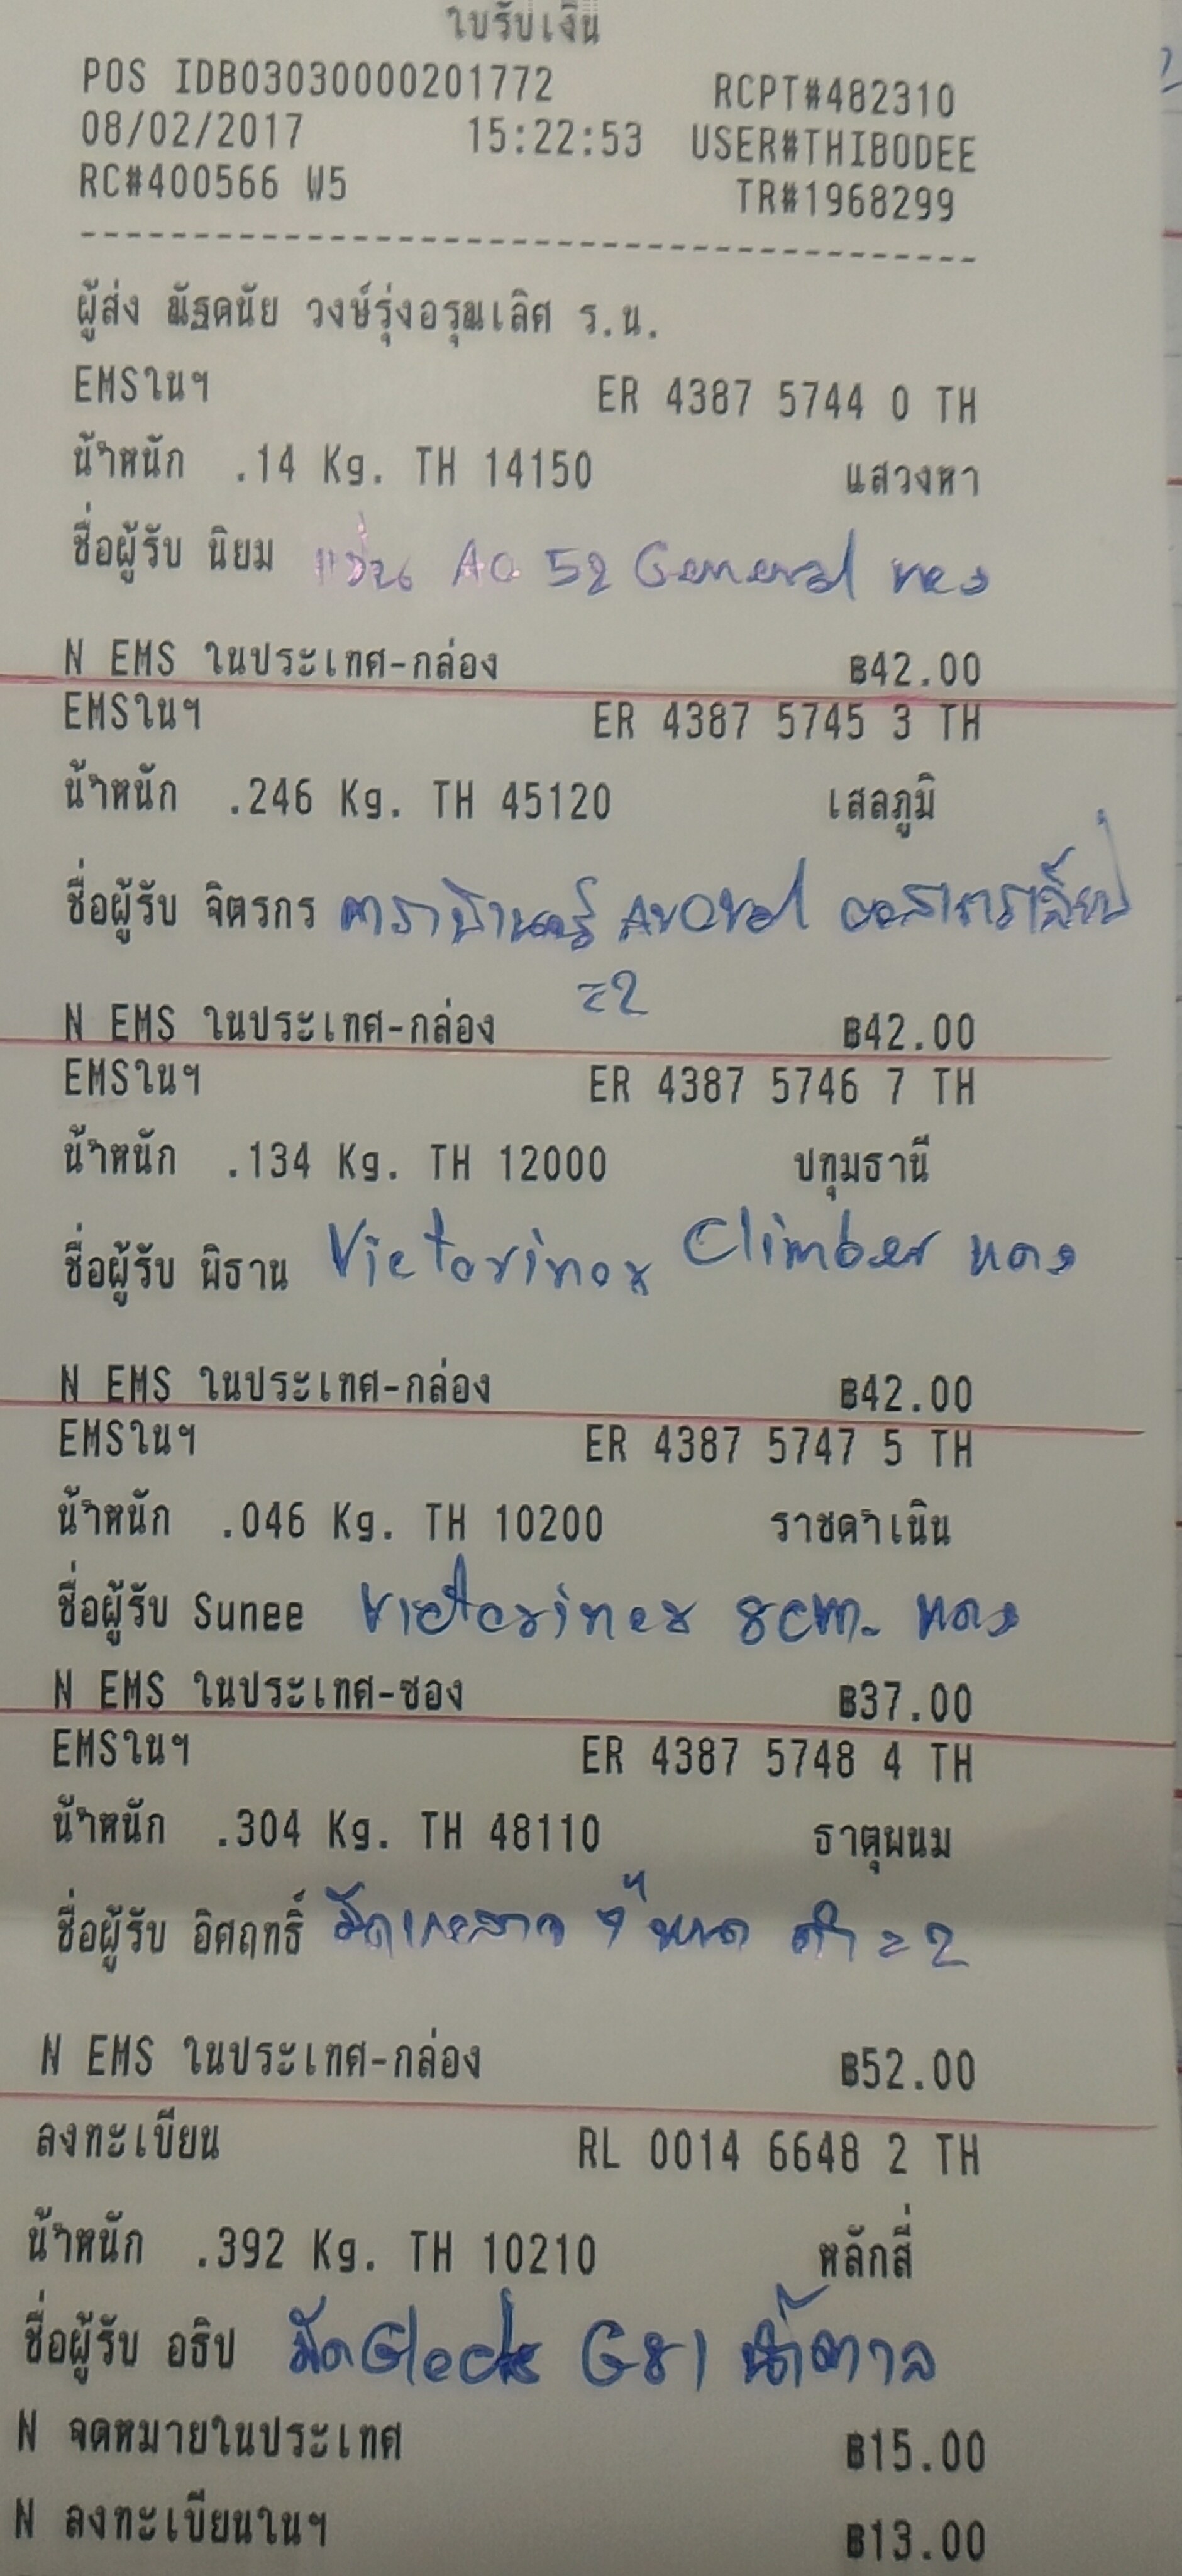 ใบรับเงิน
POS IDB03030000201772 RCPT#482310
08/02/2017 15:22:53 USER#THIBODEE
RC#400566 W5 TR#1968299
----------------------------------------
ผู้ส่ง ณัฐดนัย วงษ์รุ่งอรุณเลิศ ร.น.
EMSในฯ ER 4387 5744 0 TH
น้ำหนัก .14 Kg. TH 14150 แสวงหา
ชื่อผู้รับ นิยม แว่น AO 52 General ทอง
N EMS ในประเทศ-กล่อง ฿42.00
EMSในฯ ER 4387 5745 3 TH
น้ำหนัก .246 Kg. TH 45120 เสลภูมิ
ชื่อผู้รับ จิตรกร
=2
N EMS ในประเทศ-กล่อง ฿42.00
EMSในฯ ER 4387 5746 7 TH
น้ำหนัก .134 Kg. TH 12000 ปทุมธานี
ชื่อผู้รับ พิธาน Victorinox Climber แดง
N EMS ในประเทศ-กล่อง ฿42.00
EMSในฯ ER 4387 5747 5 TH
น้ำหนัก .046 Kg. TH 10200 ราชดำเนิน
ชื่อผู้รับ Sunee Victorinox 8cm. แดง
N EMS ในประเทศ-ซอง ฿37.00
EMSในฯ ER 4387 5748 4 TH
น้ำหนัก .304 Kg. TH 48110 ธาตุพนม
ชื่อผู้รับ อิศฤทธิ์ ดำ =2
N EMS ในประเทศ-กล่อง ฿52.00
ลงทะเบียน RL 0014 6648 2 TH
น้ำหนัก .392 Kg. TH 10210 หลักสี่
ชื่อผู้รับ อธิป มีด Glock G81 น้ำตาล
N จดหมายในประเทศ ฿15.00
N ลงทะเบียนในฯ ฿13.00